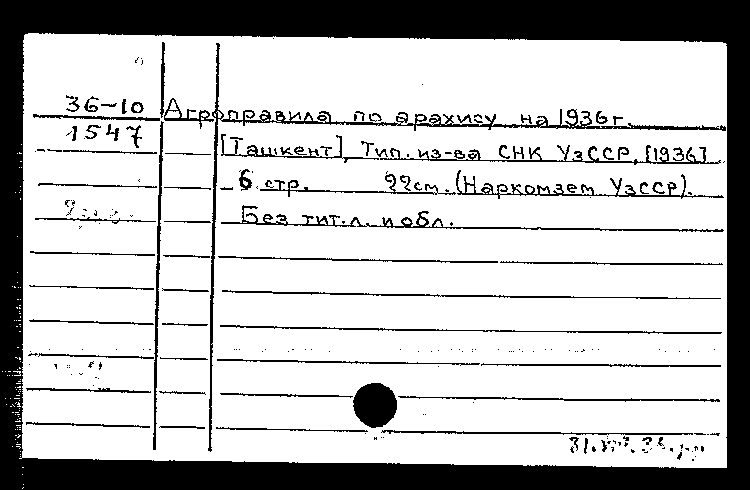 36-10 Агроправила по арахису на 1936г.
1547
[Ташкент], Тип. из-ва СНК УзССР, [1936]
6 стр. 22см. (Наркомзем УзССР).
Без тит.л. и обл.